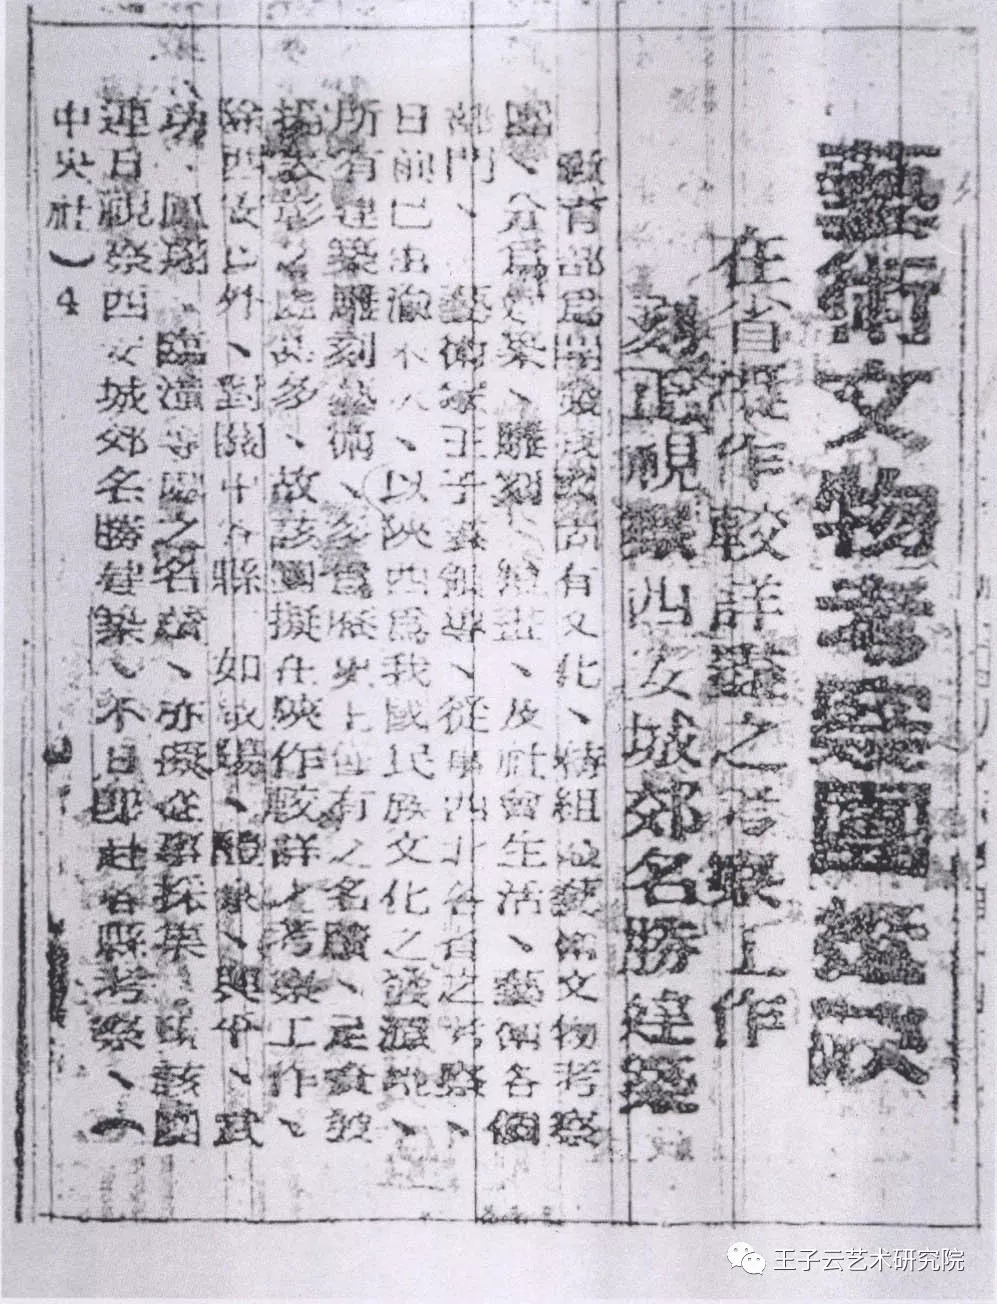 藝術文物考察團在陝
在省擬作較詳盡之考察工作
刻正視察西安城郊名勝建築
教育部爲開發我國固有文化、特組織藝術文物考察
團、分爲建築、雕刻、繪畫、及社會生活、藝術各個
部門、藝術家王子雲領導、從事西北各省之考察、
日前已由渝來、以陝西爲我國民族文化之發源地、
所有建築雕刻藝術、多爲歷史上僅有之名蹟、足資發
揚之處甚多、故該團擬在陝作較詳之考察工作、
除西安以外、對關中各縣 如武陽、醴泉、興平、武
功、鳳翔 臨潼等縣之名蹟、亦擬從事採集 現該團
連日視察西安城郊名勝建築、不日即赴各縣考察、（
中央社）4
王子云艺术研究院